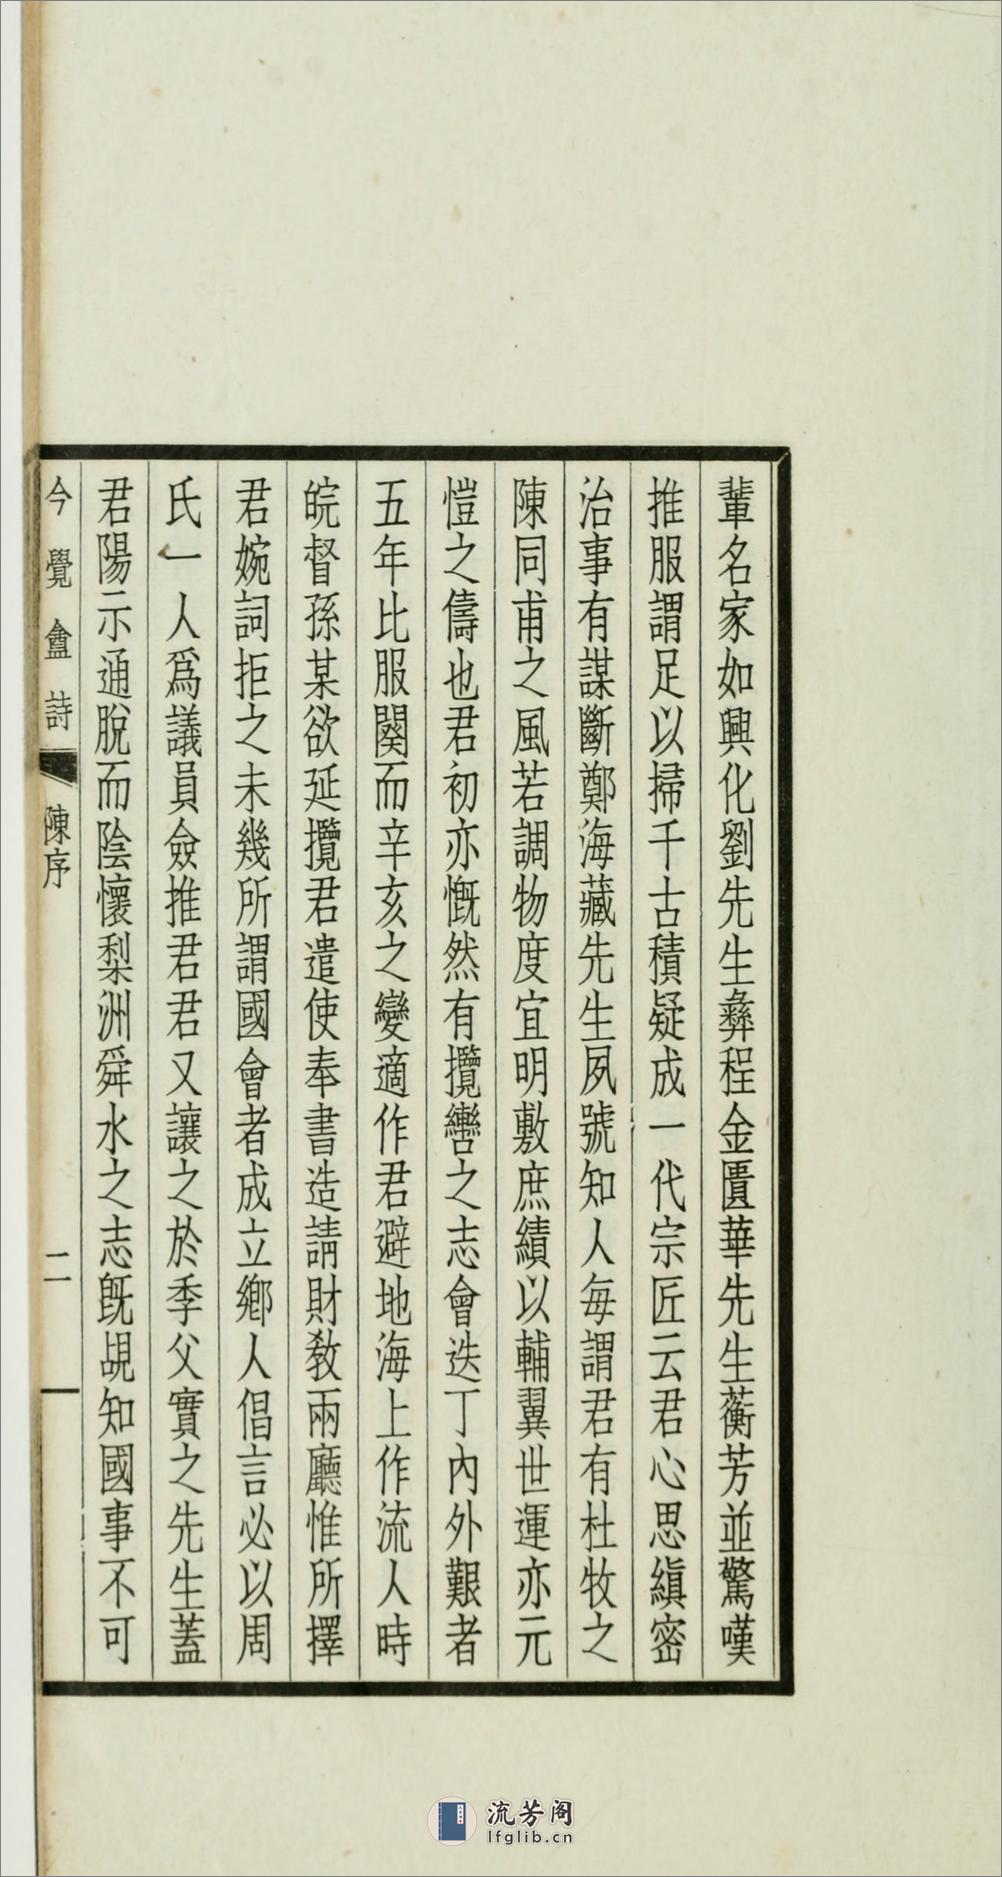 輩名家如興化劉先生彝程金匱華先生蘅芳並驚嘆
推服謂足以掃千古積疑成一代宗匠云君心思縝密
治事有謀斷鄭海藏先生夙號知人每謂君有杜牧之
陳同甫之風若調物度宜明敷庶績以輔翼世運亦元
愷之儔也君初亦慨然有攬轡之志會迭丁內外艱者
五年比服闋而辛亥之變適作君避地海上作流人時
皖督孫某欲延攬君遣使奉書造請財敎兩廳惟所擇
君婉詞拒之未幾所謂國會者成立鄉人倡言必以周
氏一人爲議員僉推君君又讓之於季父實之先生蓋
君陽示通脫而陰懷梨洲舜水之志旣覘知國事不可
今覺盦詩 陳序 二
流芳阁
lfglib.cn